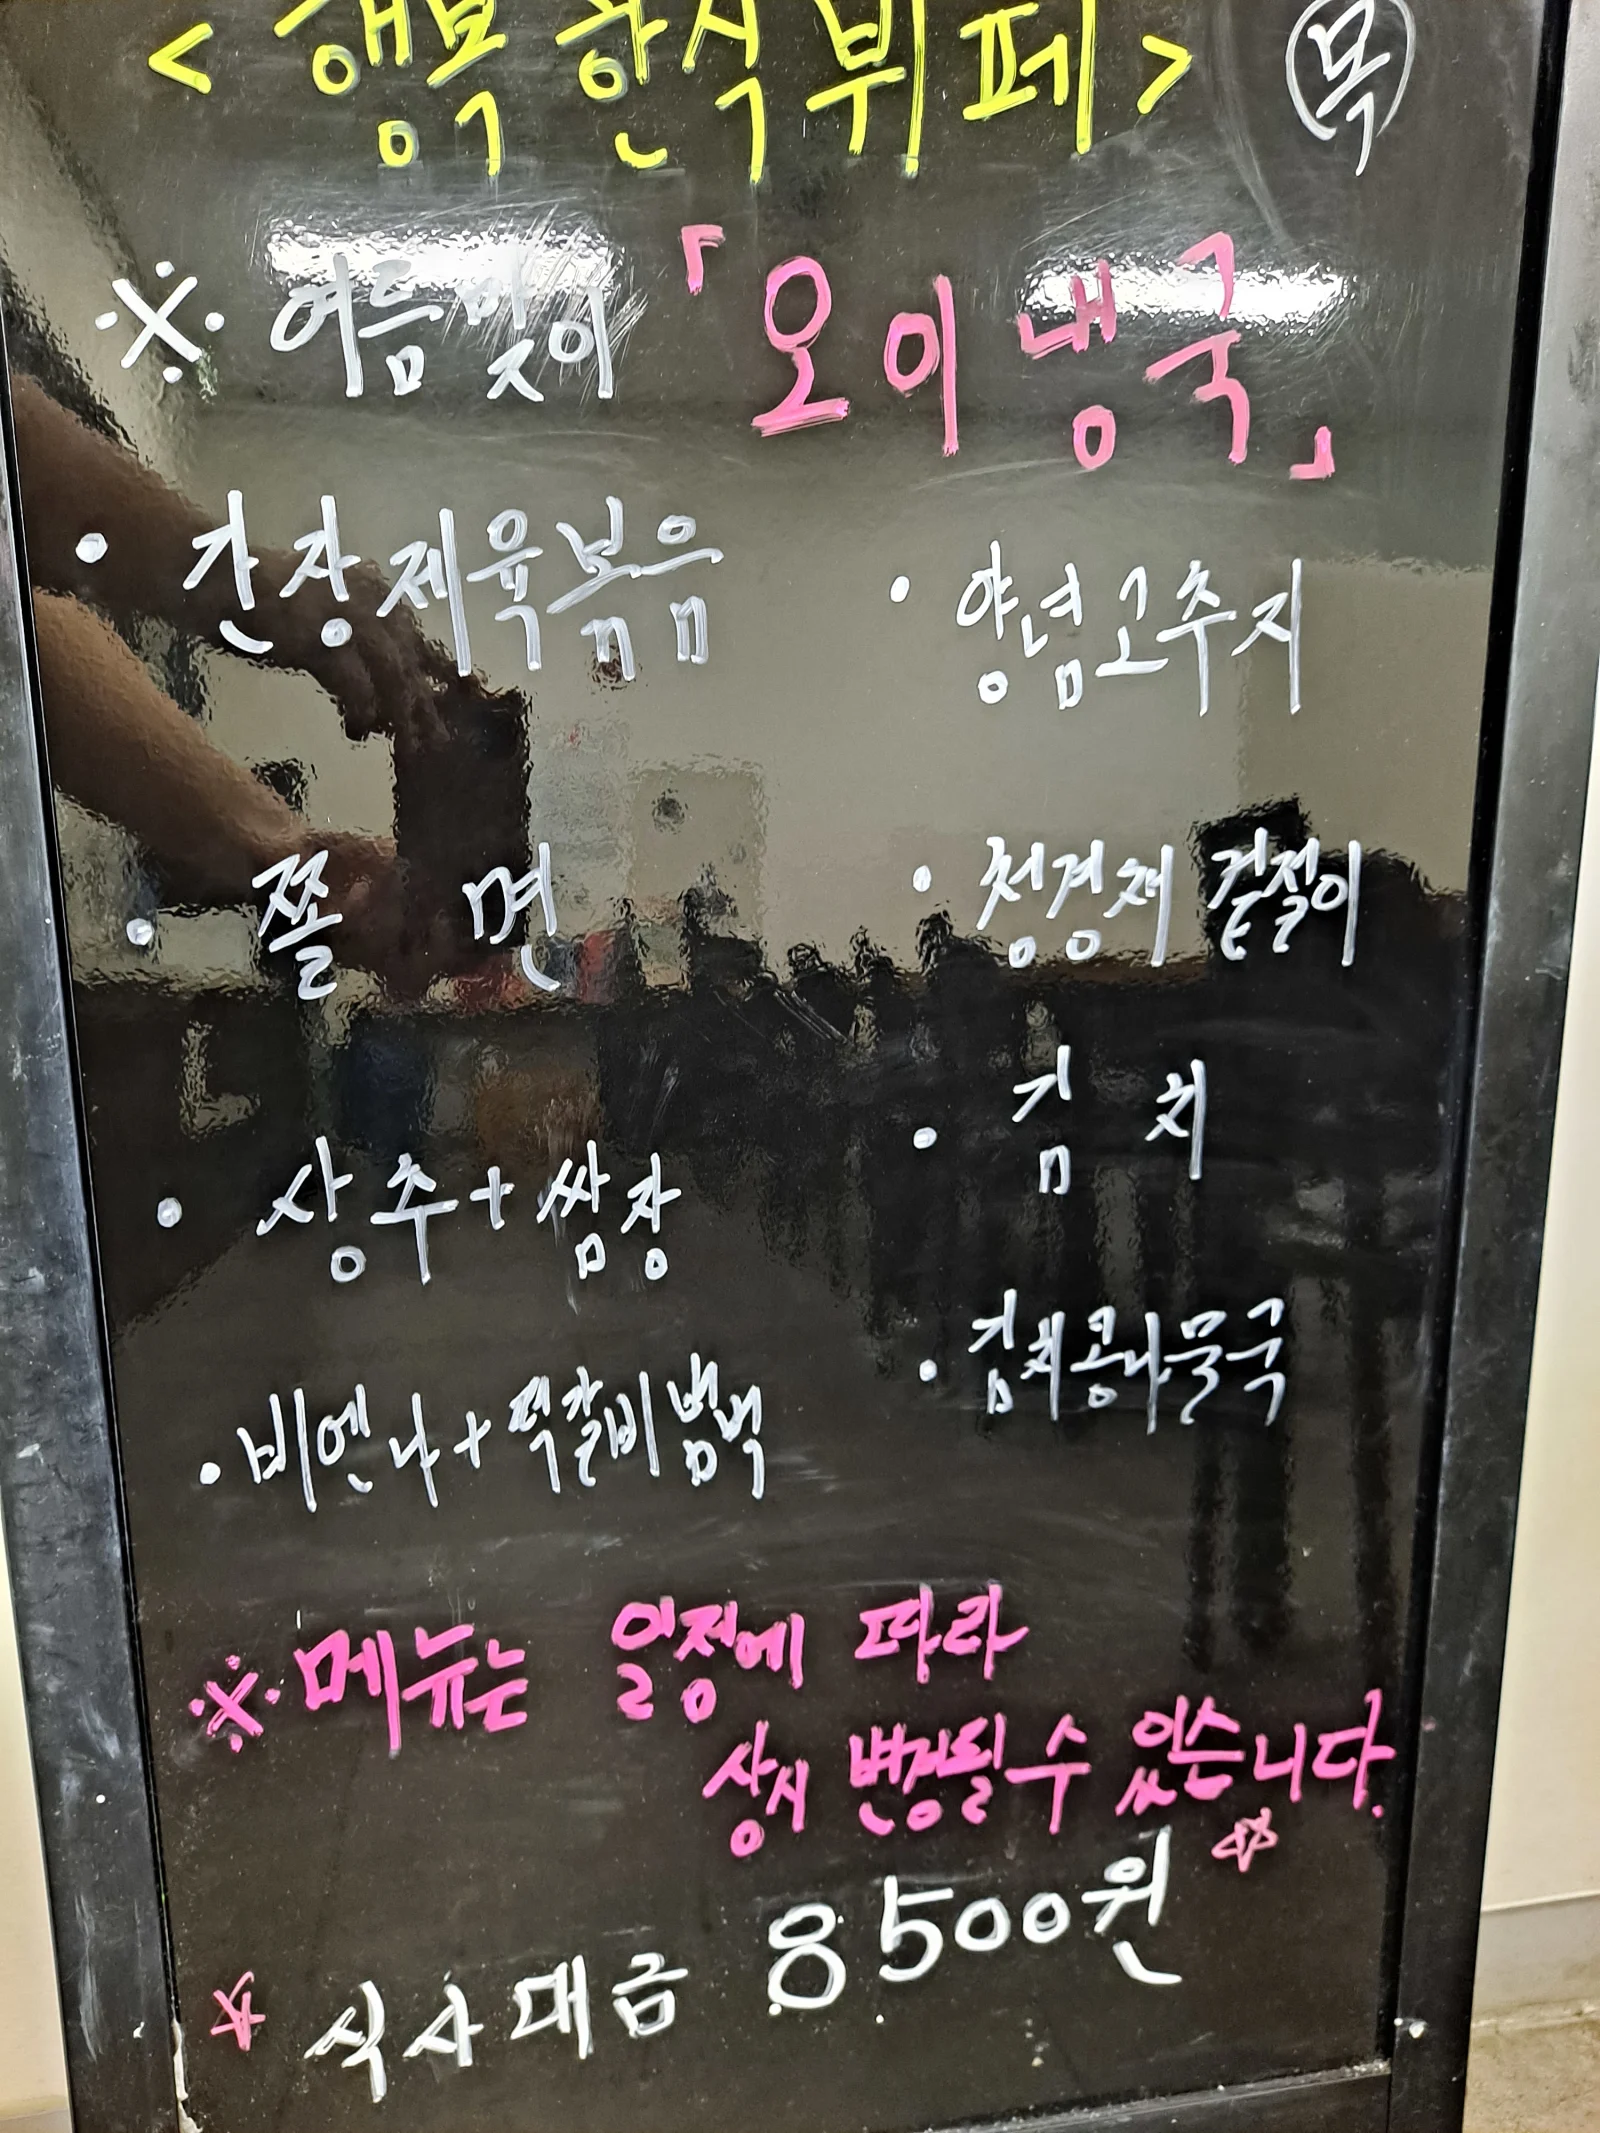 <행복한식뷔페> 목
※ 여름맞이 「오이냉국」
• 간장제육볶음
• 양념고추지
• 쫄 면
• 청경채 겉절이
• 상추+쌈장
• 김 치
• 비엔나+떡갈비범벅
• 김치콩나물국
※ 메뉴는 일정에 따라
상시 변경될 수 있습니다.
☆ 식사대금 8500원 ☆